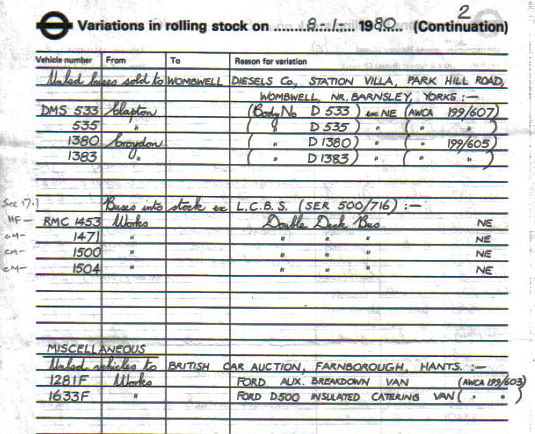 2
Variations in rolling stock on 8-1-1980 (Continuation)
Vehicle number From To Reason for variation
Unlsd buses sold to WOMBWELL DIESELS Co., STATION VILLA, PARK HILL ROAD,
WOMBWELL, NR. BARNSLEY, YORKS :—
DMS 533 Clapton (Body No D 533) ex NE (AWCA 199/607)
535 " ( " D 535) " ( " " )
1380 Croydon ( " D 1380) " ( " 199/605)
1383 " ( " D 1383) " ( " " )
See 17.1 Buses into stock ex L.C.B.S. (SER 500/716) :—
HF— RMC 1453 Works Double Deck Bus NE
CM— 1471 " " " " NE
CM— 1500 " " " " NE
CM— 1504 " " " " NE
MISCELLANEOUS
Unlsd vehicles to BRITISH CAR AUCTION, FARNBOROUGH, HANTS. :—
1281F Works FORD AUX. BREAKDOWN VAN (AWCA 199/603)
1633F " FORD D500 INSULATED CATERING VAN ( " " )